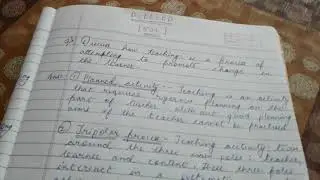 D. El. Ed
Discuss how teaching is a process of
attempting to promote change in
the learner
Ans: ① Planned activity:- Teaching is an activity
that requires rigorous planning on the
part of teacher. Without good planning
some of the teacher cannot be
② Tripolar process - Teaching activity
around the three poles: teacher,
learner and content. These three poles
interact in a